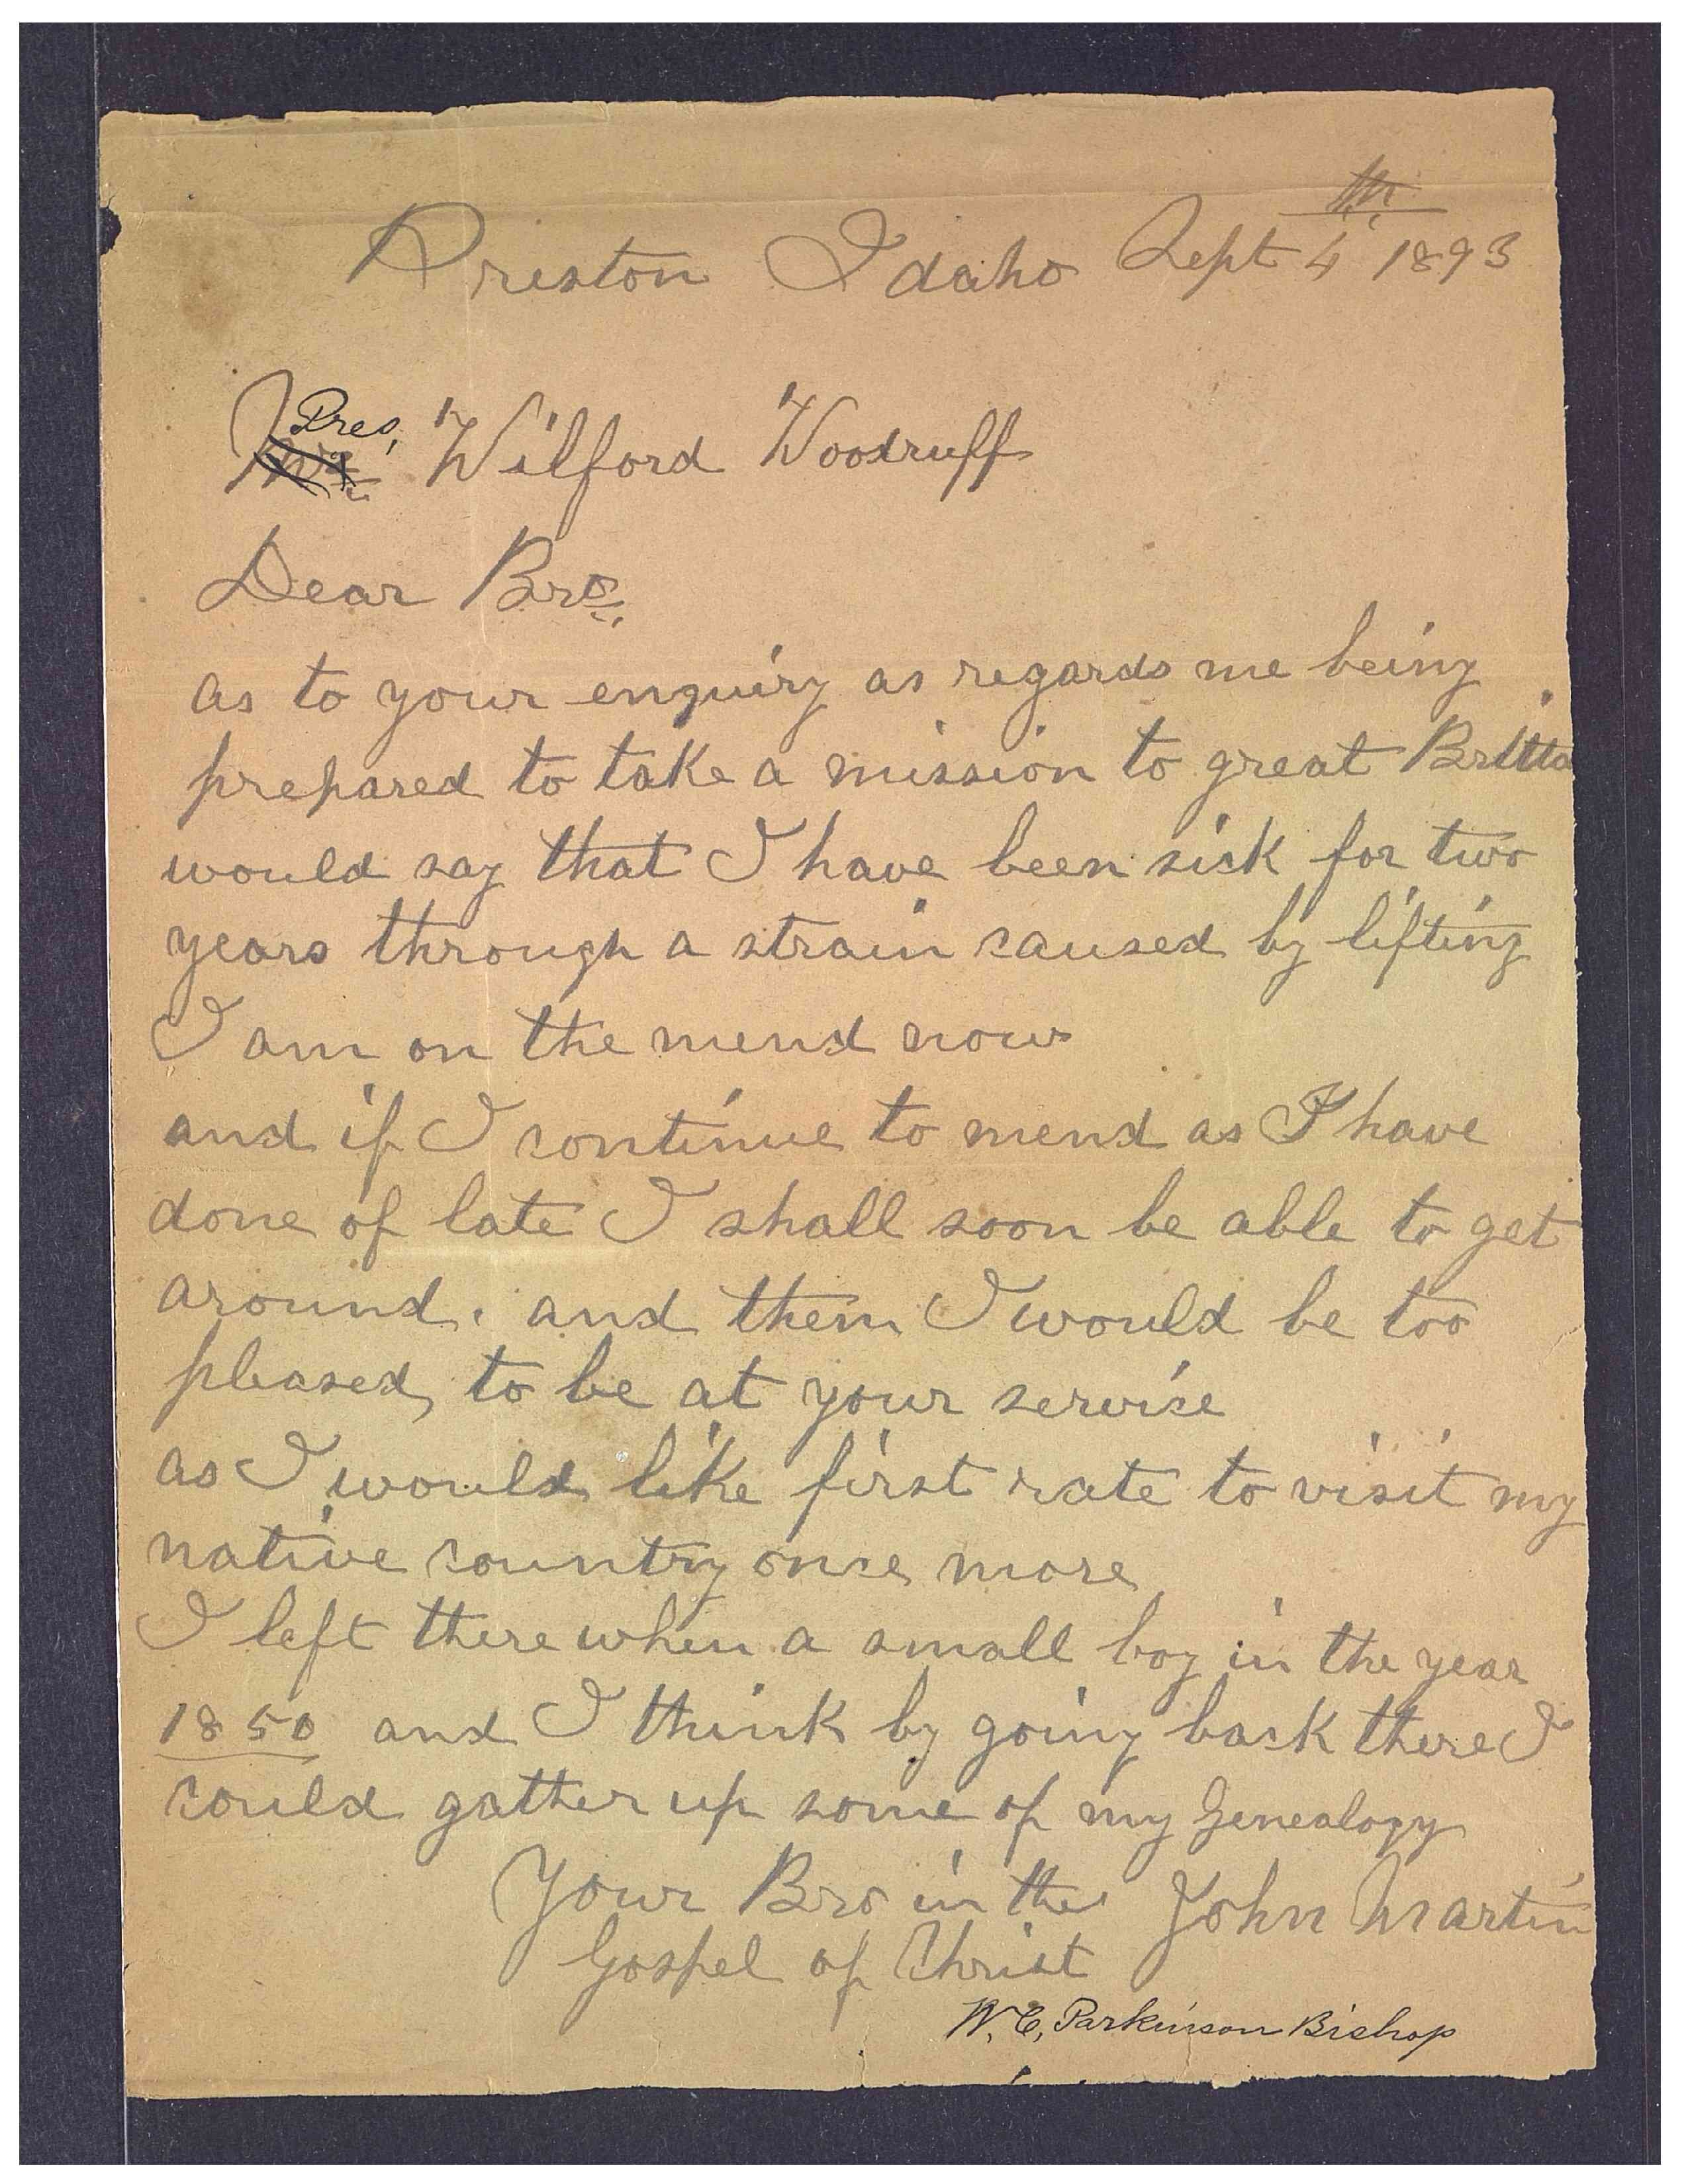 Preston Idaho Sept 4th 1893
Pres, Wilford Woodruff
Dear Bro.
as to your enquiry as regards me being
prepared to take a mission to great Britta
would say that I have been sick for two
years through a strain caused by lifting
I am on the mend now
and if I continue to mend as I have
done of late I shall soon be able to get
around. and them I would be too
pleased, to be at your service
as I would like first rate to visit my
native country once more
I left there when a small boy in the year
1850 and I think by going back there I
could gather up some of my Genealogy
Your Bro in the John Martin
Gospel of Christ
W. C, Parkinson Bishop